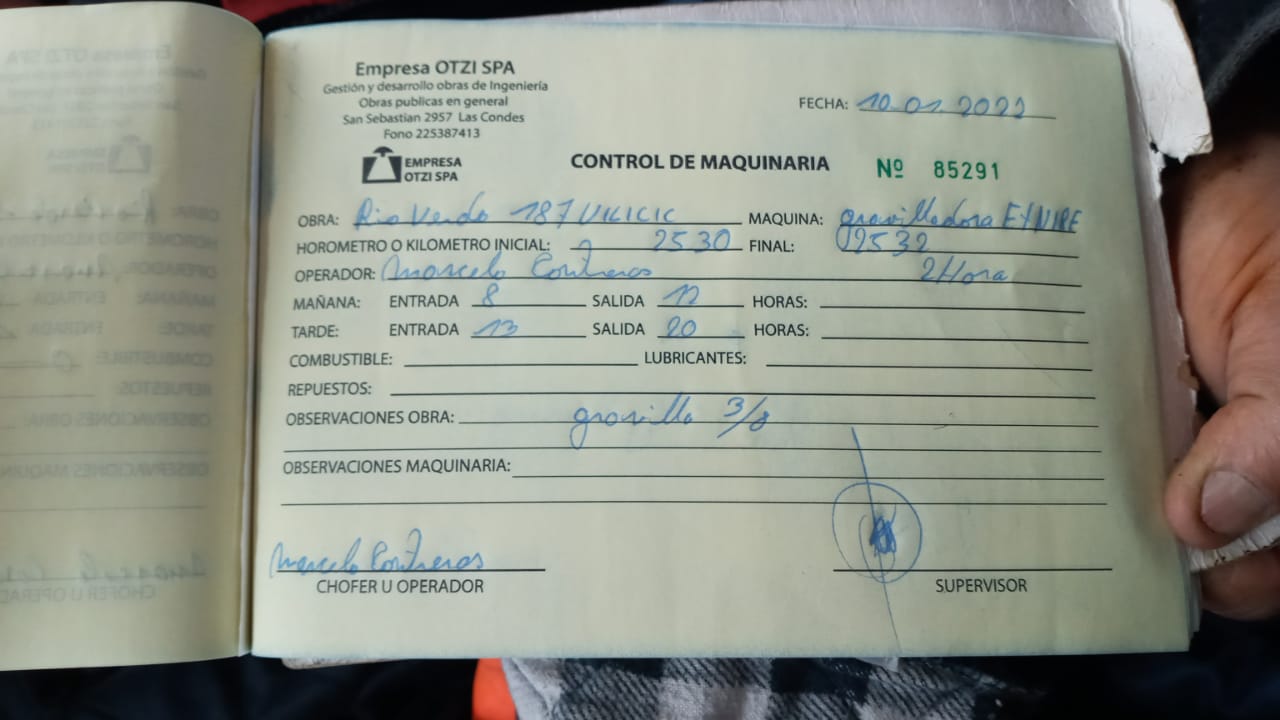 Empresa OTZI SPA
Gestión y desarrollo obras de Ingeniería
Obras publicas en general
San Sebastian 2957 Las Condes
Fono 225387413
FECHA: 10.01.2022
EMPRESA
OTZI SPA
CONTROL DE MAQUINARIA Nº 85291
OBRA: Rio Verde 187 MAQUINA: gravilladora
HOROMETRO O KILOMETRO INICIAL: 2530 FINAL: 02532
OPERADOR: Marcelo Contreras 2 Hora
MAÑANA: ENTRADA 8 SALIDA 12 HORAS:
TARDE: ENTRADA 13 SALIDA 20 HORAS:
COMBUSTIBLE: LUBRICANTES:
REPUESTOS:
OBSERVACIONES OBRA: gravilla 3/8
OBSERVACIONES MAQUINARIA:
Marcelo Contreras
CHOFER U OPERADOR SUPERVISOR